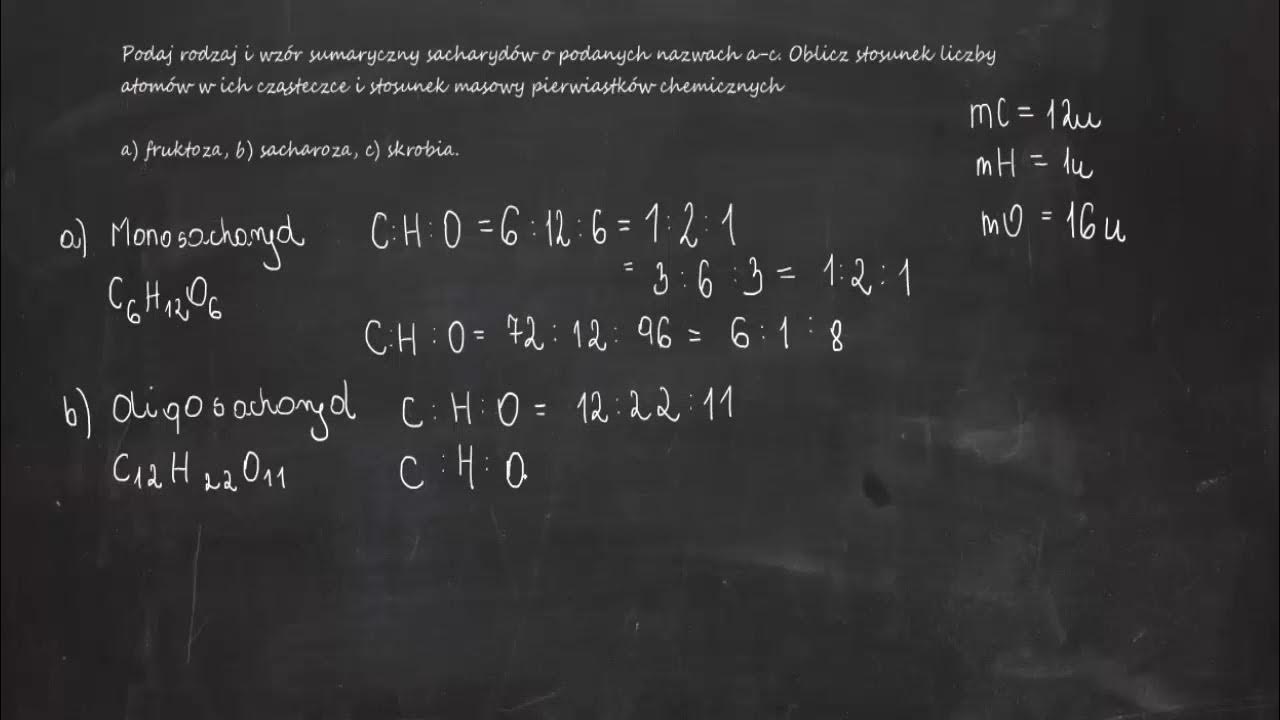 Podaj rodzaj i wzór sumaryczny sacharydów o podanych nazwach a-c. Oblicz stosunek liczby
atomów w ich cząsteczce i stosunek masowy pierwiastków chemicznych
a) fruktoza, b) sacharoza, c) skrobia.
mC = 12u
mH = 1u
mO = 16u
a) Monosacharyd C:H:O = 6:12:6 = 1:2:1
= 3:6:3 = 1:2:1
C₆H₁₂O₆
C:H:O = 72:12:96 = 6:1:8
b) Oligosacharyd C:H:O = 12:22:11
C₁₂H₂₂O₁₁ C:H:O